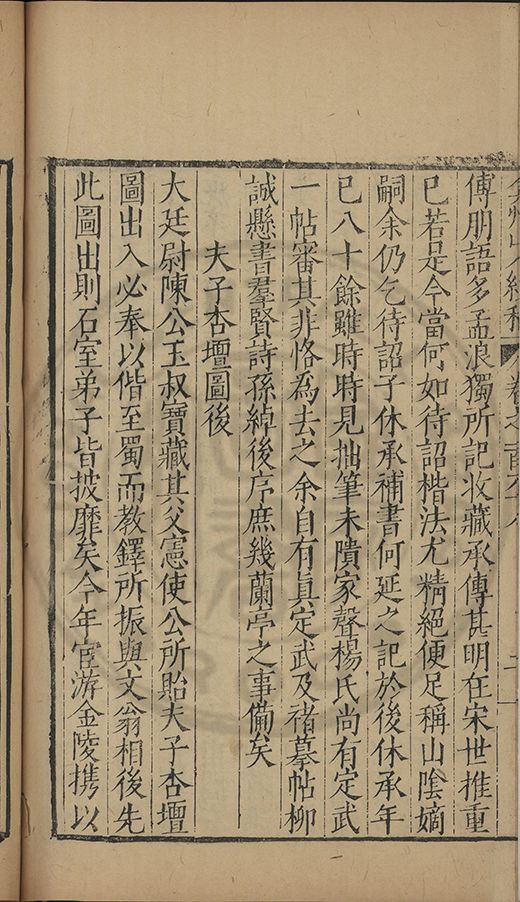 傅朋語多孟浪獨所記收藏承傳甚明在宋世推重
已若是今當何如待詔楷法尤精絕便足稱山陰嫡
嗣余仍乞待詔子休承補書何延之記於後休承年
已八十餘雖時時見拙筆未隤家聲楊氏尚有定武
一帖審其非恪為去之余自有眞定武及褚摹帖柳
誠懸書羣賢詩孫綽後序庶幾蘭亭之事備矣
夫子杏壇圖後
大廷尉陳公玉叔寶藏其父憲使公所貽夫子杏壇
圖出入必奉以偕至蜀而教鐸所振與文翁相後先
此圖出則石室弟子皆披靡矣今年宦游金陵携以